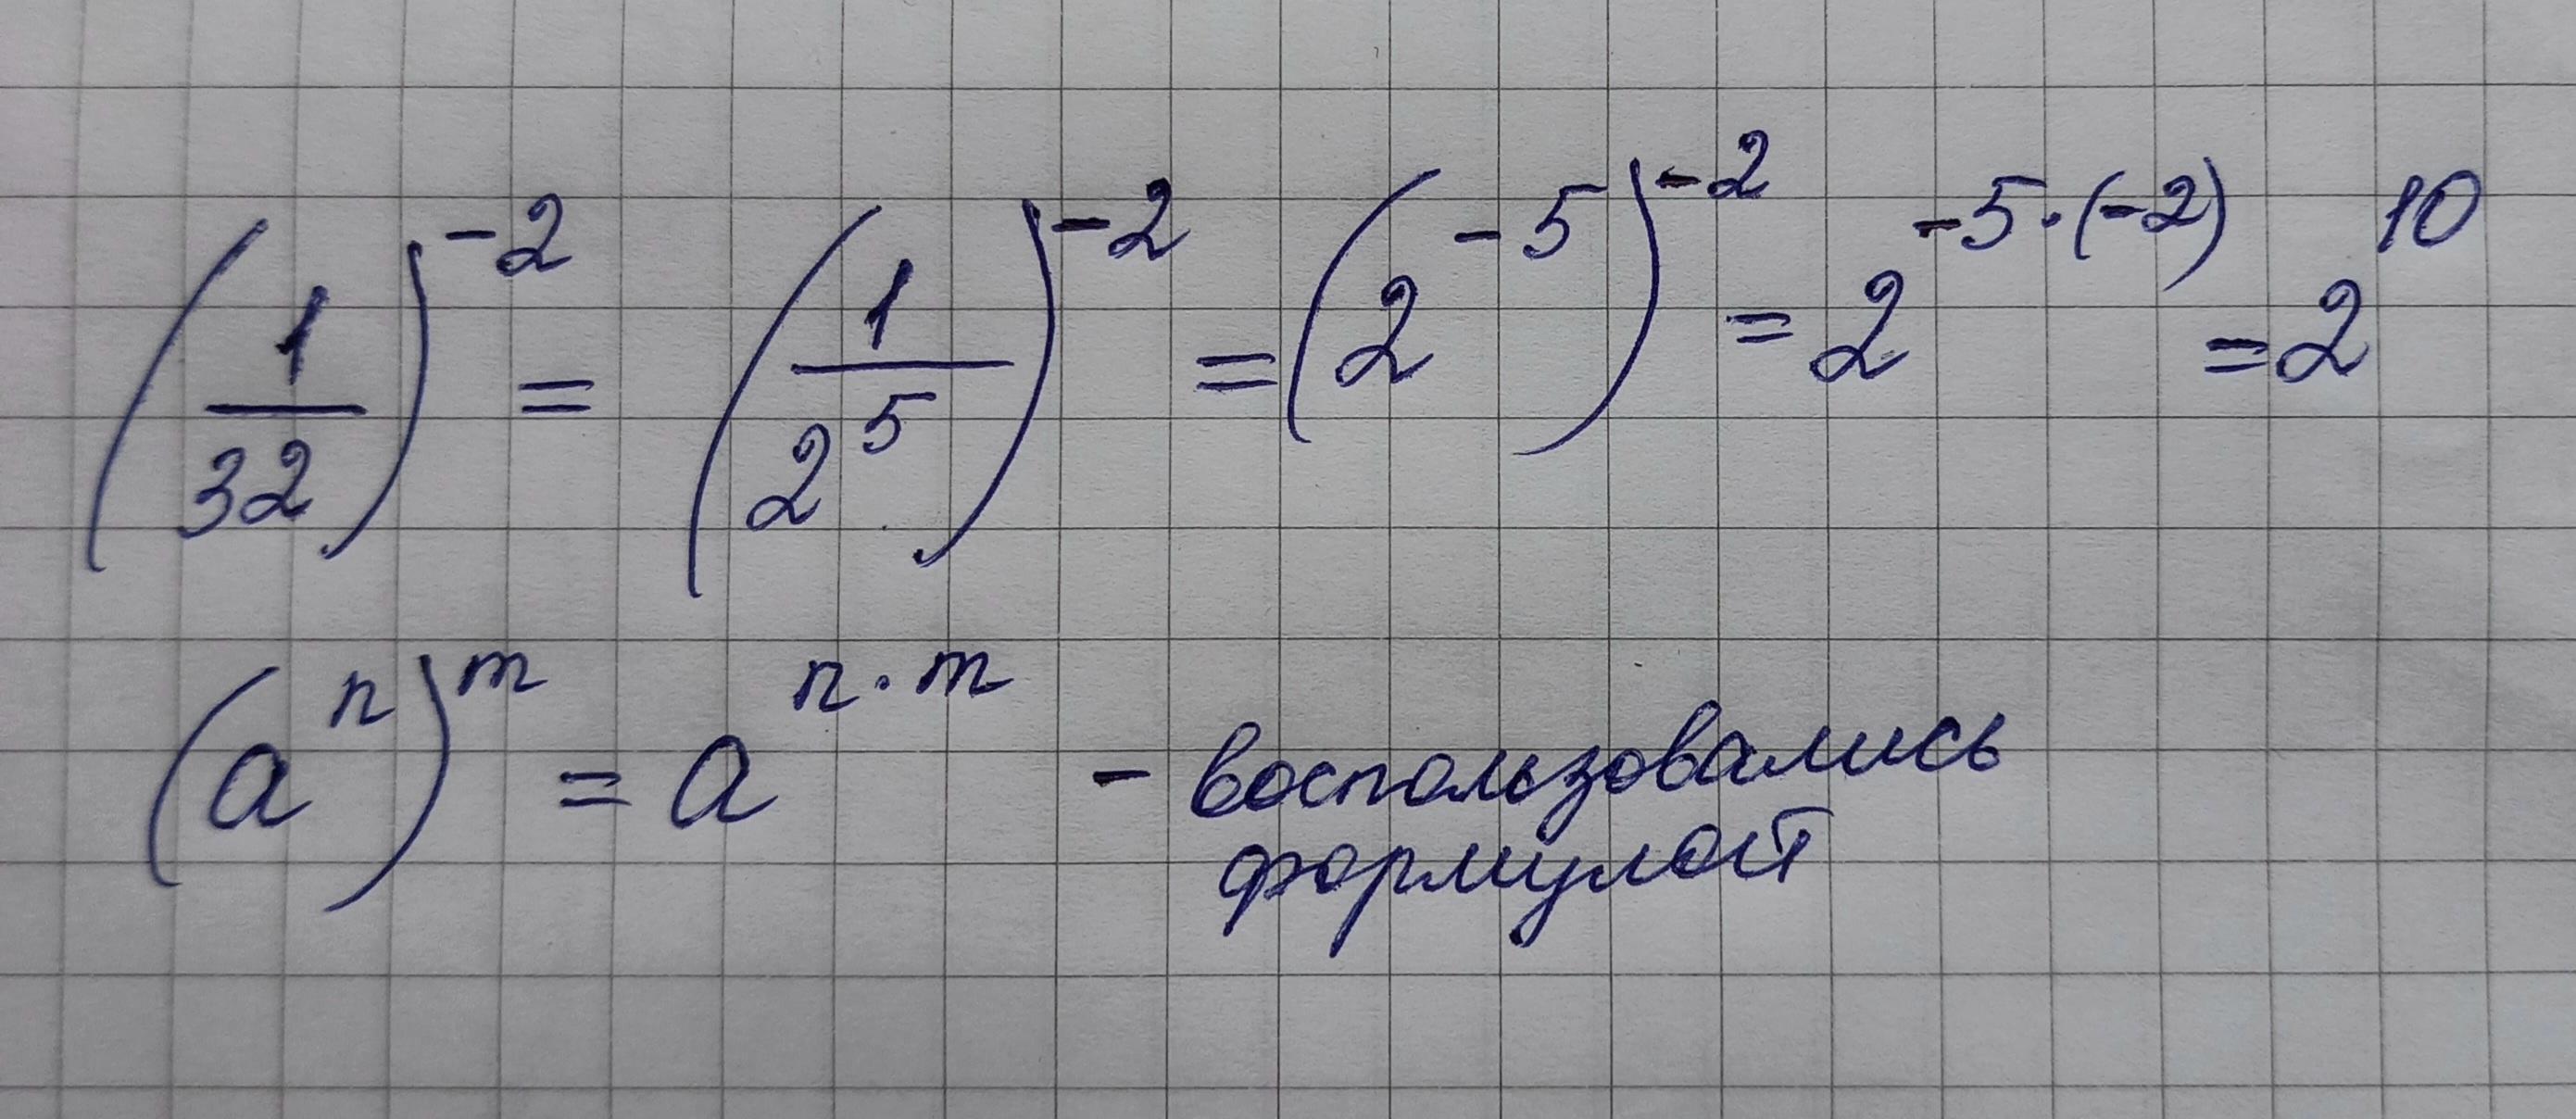 (1/32)^-2 = (1/2^5)^-2 = (2^-5)^-2 = 2^-5·(-2) = 2^10
(a^n)^m = a^n·m - воспользовались
формулой